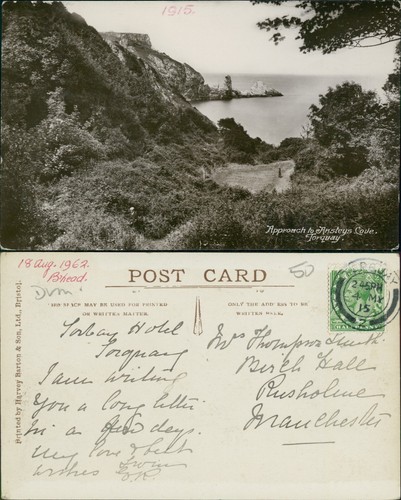 1915.
Approach to Ansteys Cove.
Torquay.
18 Aug. 1962.
B'head.
50
POST CARD
THIS SPACE MAY BE USED FOR PRINTED
OR WRITTEN MATTER.
ONLY THE ADDRESS TO BE
WRITTEN HERE.
Printed by Harvey Barton & Son, Ltd., Bristol.
Torbay Hotel
Torquay
I am writing
you a long letter
in a few days.
My love & best
wishes
Mrs Thompson
Birch Hall
Rusholme
Manchester
2 45 PM
15
HALF PENNY